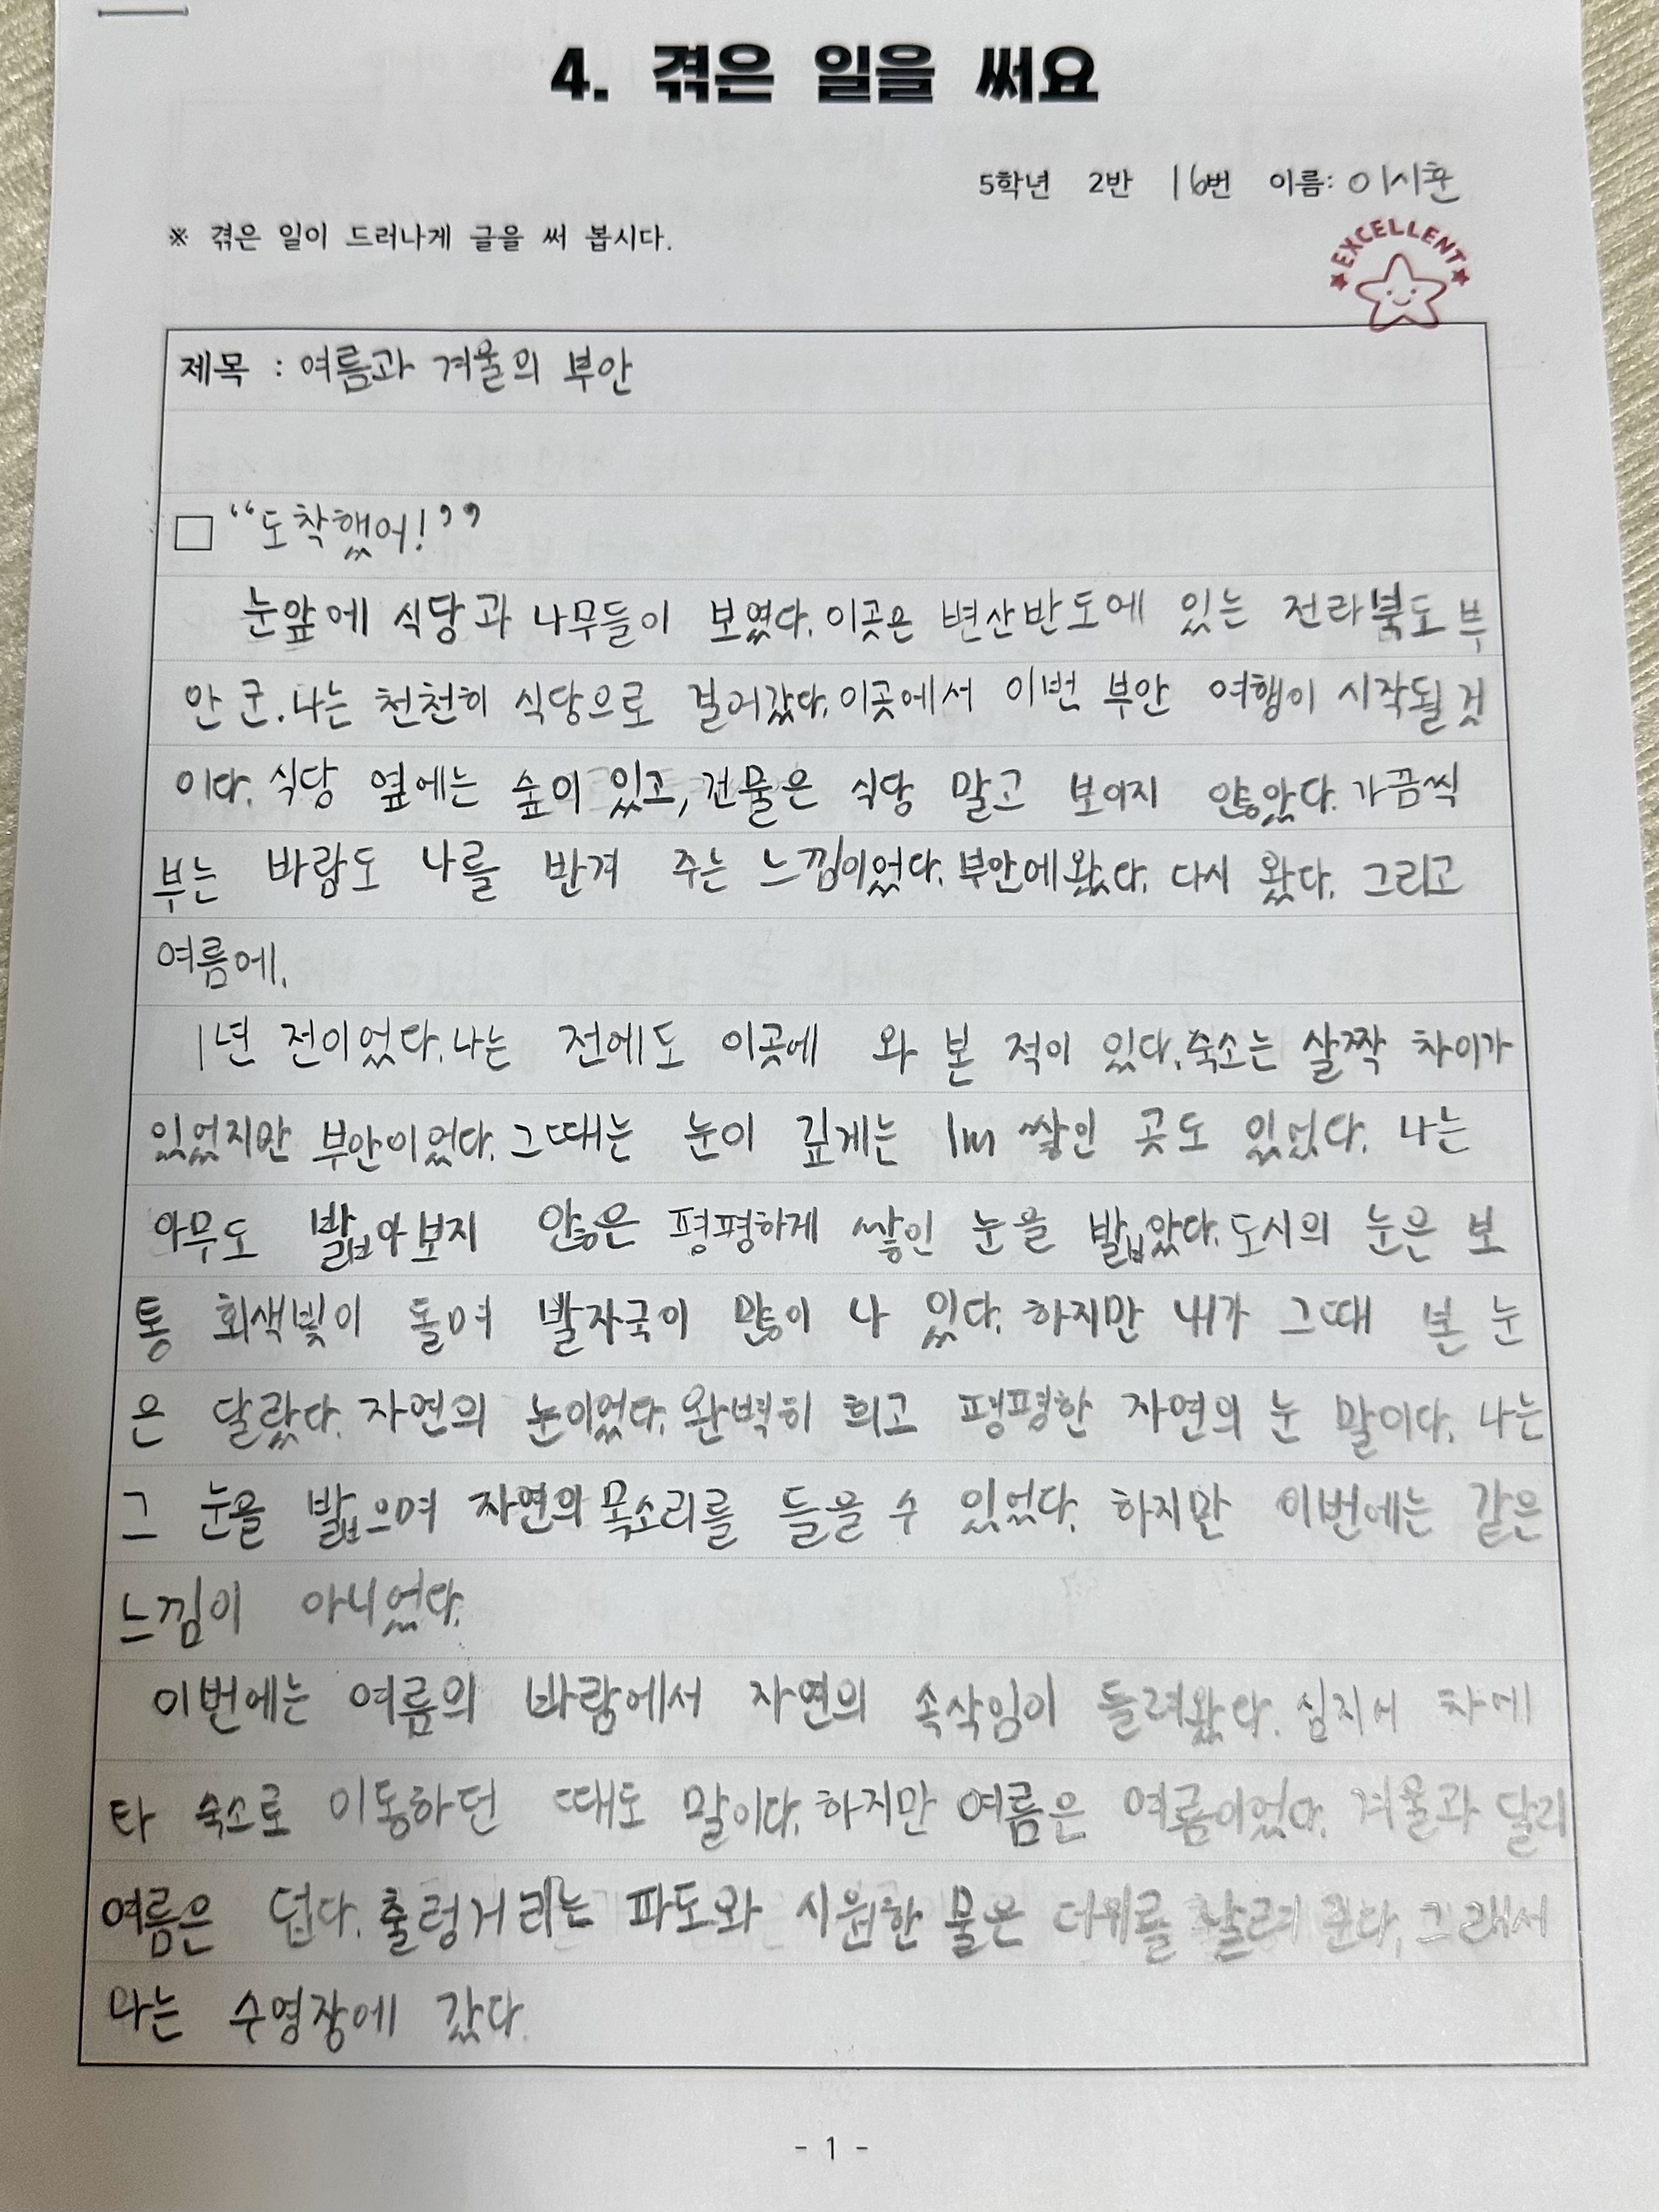 4. 겪은 일을 써요
5학년 2반 16번 이름: 이시환
※ 겪은 일이 드러나게 글을 써 봅시다.
EXCELLENT
제목 : 여름과 겨울의 부안
□ “도착했어!”
눈앞에 식당과 나무들이 보였다. 이곳은 변산반도에 있는 전라북도 부
안군. 나는 천천히 식당으로 걸어갔다. 이곳에서 이번 부안 여행이 시작될 것
이다. 식당 옆에는 숲이 있고, 건물은 식당 말고 보이지 않았다. 가끔씩
부는 바람도 나를 반겨 주는 느낌이었다. 부안에 왔다. 다시 왔다. 그리고
여름에.
1년 전이었다. 나는 전에도 이곳에 와 본 적이 있다. 숙소는 살짝 차이가
있었지만 부안이었다. 그때는 눈이 깊게는 1m 쌓인 곳도 있었다. 나는
아무도 밟아보지 않은 평평하게 쌓인 눈을 밟았다. 도시의 눈은 보
통 회색빛이 돌며 발자국이 많이 나 있다. 하지만 내가 그때 본 눈
은 달랐다. 자연의 눈이었다. 완벽히 희고 평평한 자연의 눈 말이다. 나는
그 눈을 밟으며 자연의 목소리를 들을 수 있었다. 하지만 이번에는 같은
느낌이 아니었다.
이번에는 여름의 바람에서 자연의 속삭임이 들려왔다. 심지어 차에
타 숙소로 이동하던 때도 말이다. 하지만 여름은 여름이었다. 겨울과 달리
여름은 덥다. 출렁거리는 파도와 시원한 물은 더위를 날려 준다. 그래서
나는 수영장에 갔다.
- 1 -